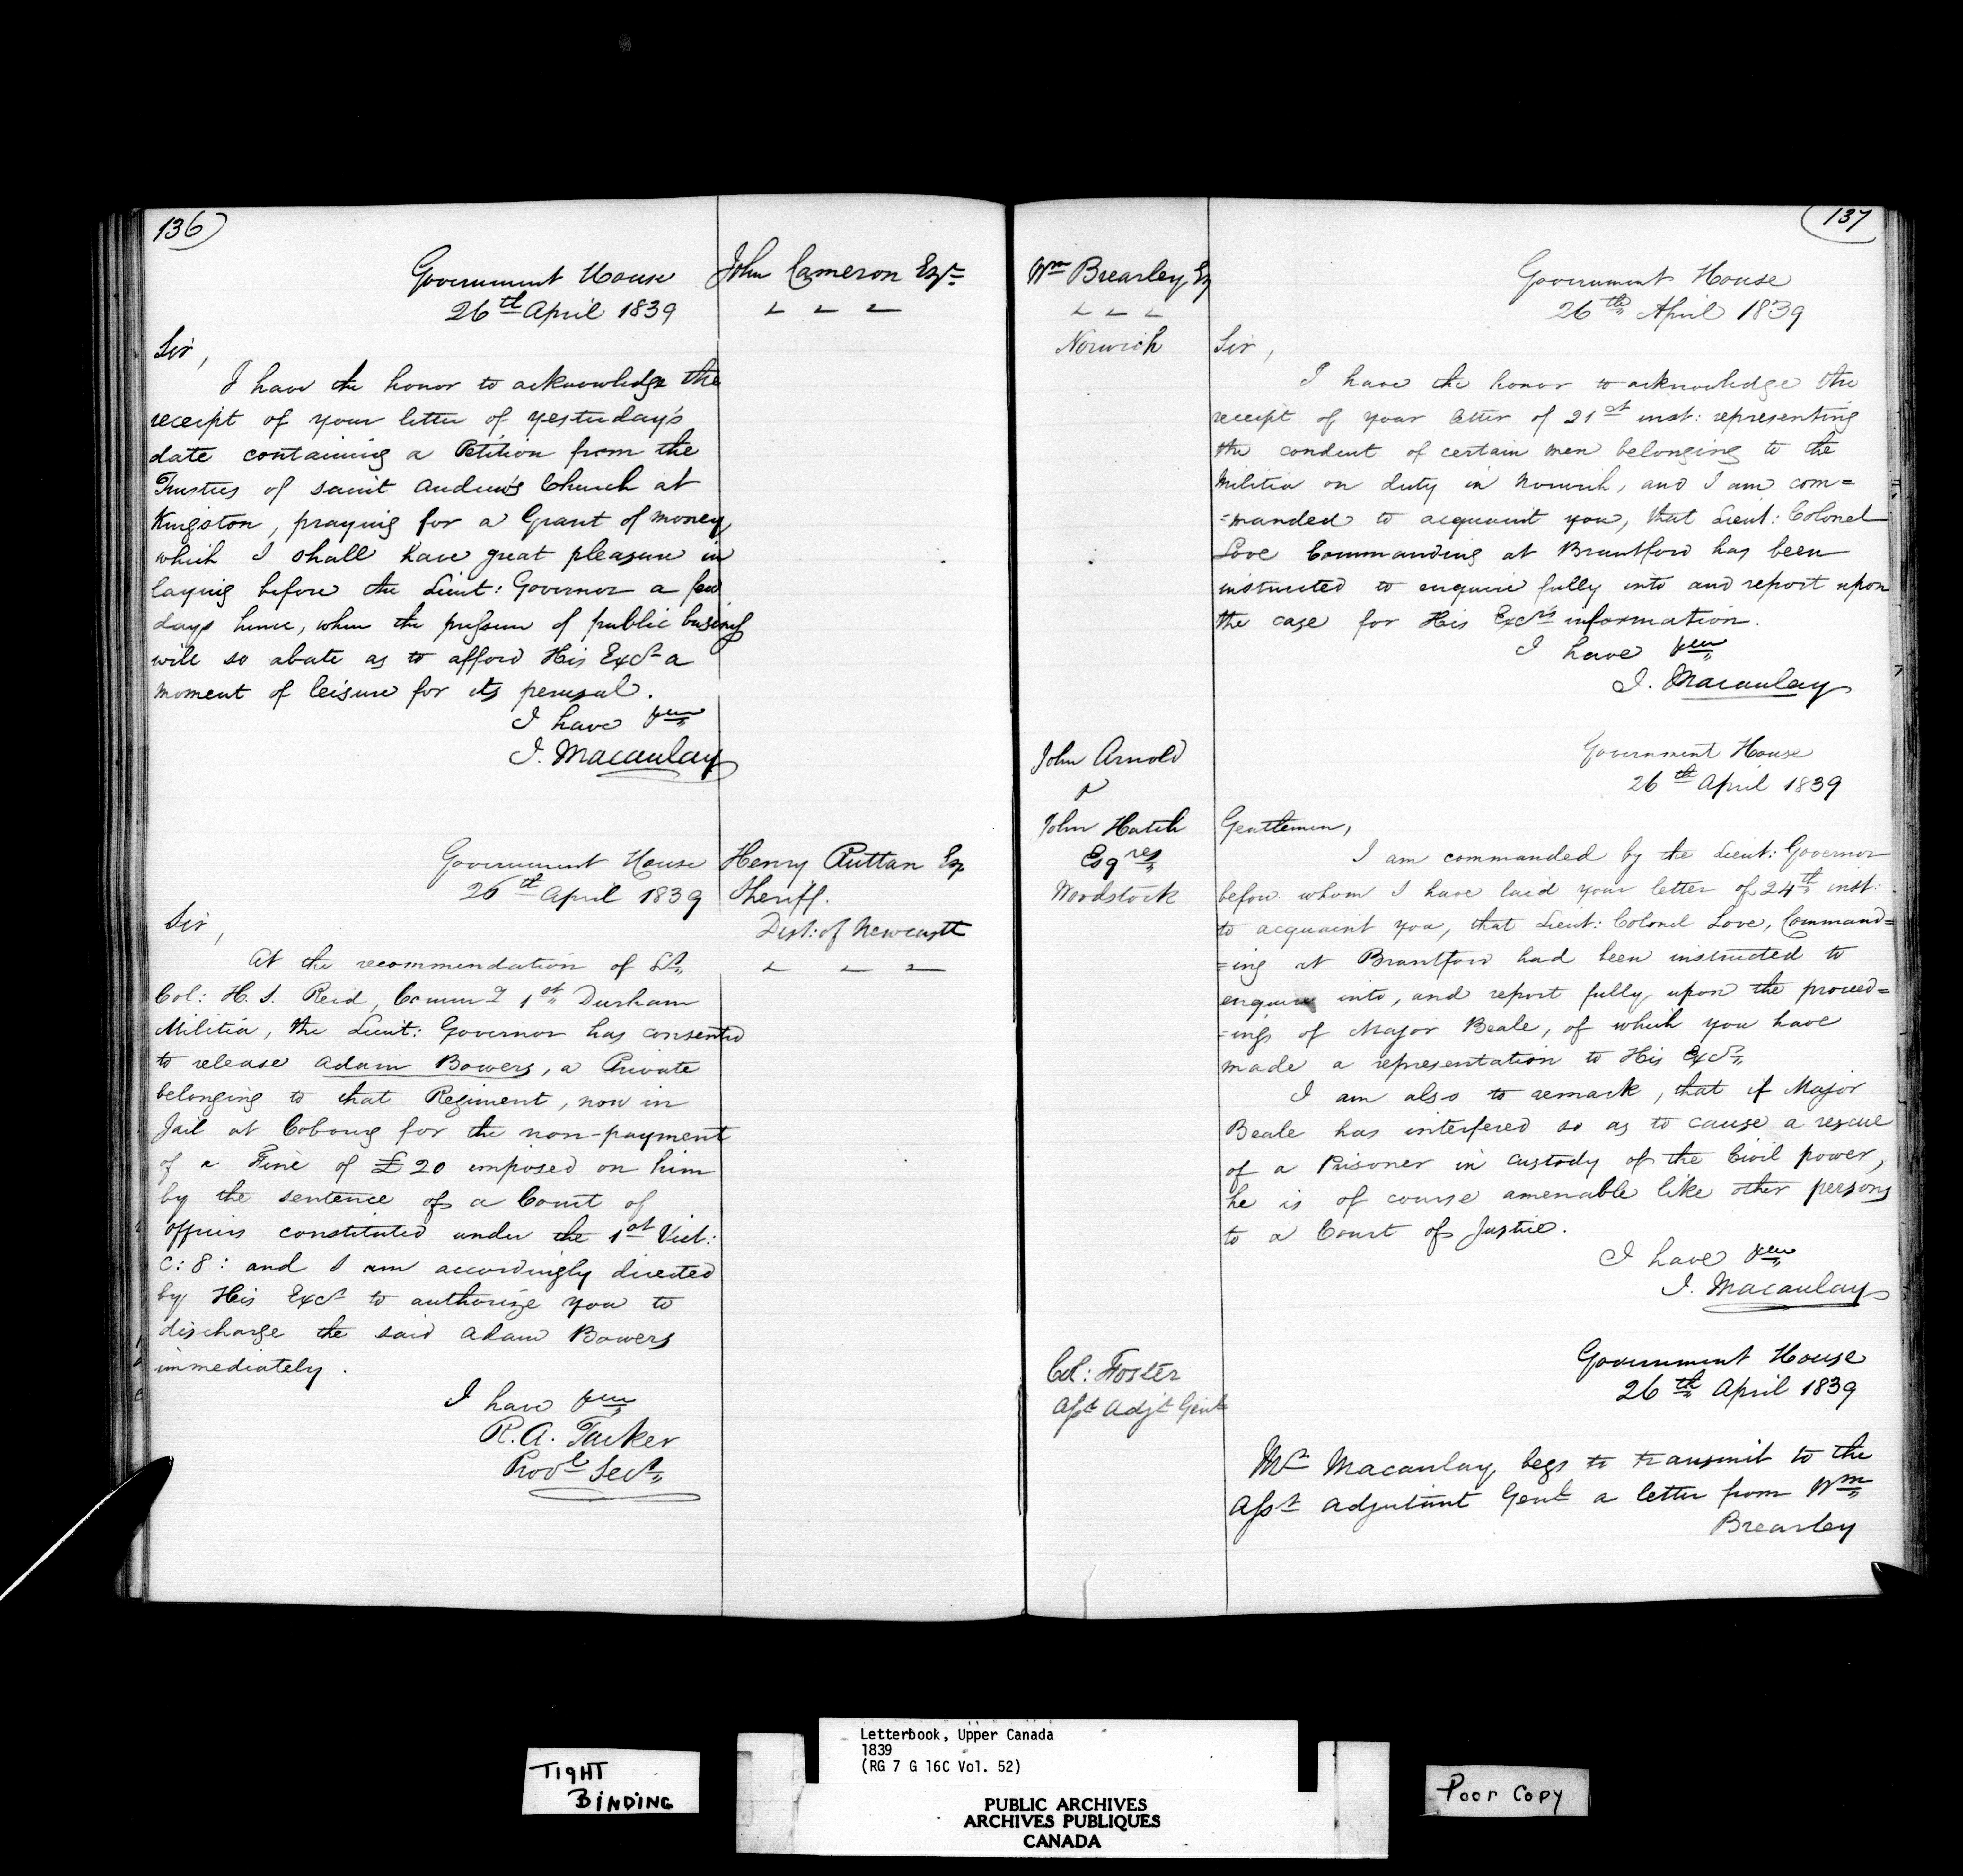 136
Government House
26th April 1839
John Cameron Esqr
Sir,
I have the honor to acknowledge the
receipt of your letter of yesterday's
date containing a Petition from the
Trustees of Saint Andrew's Church at
Kingston, praying for a Grant of money
which I shall have great pleasure in
laying before the Lieut: Governor a few
days hence, when the pressure of public business
will so abate as to afford His Excy a
moment of leisure for its perusal.
I have
J. Macaulay
Government House
26th April 1839
Henry Ruttan Esq
Sheriff.
Dist: of Newcastle
Sir,
At the recommendation of Lt
Col: H. S. Reid, Commg 1st Durham
Militia, the Lieut: Governor has consented
to release Adam Bowers, a Private
belonging to that Regiment, now in
Jail at Cobourg for the non-payment
of a Fine of £20 imposed on him
by the sentence of a Court of
officers constituted under the 1st Vict:
C: 8: and I am accordingly directed
by His Excy to authorize you to
discharge the said Adam Bowers
immediately.
I have
R. A. Tucker
Provl Secy
137
Wm Brearley Esq
Norwich
Government House
26th April 1839
Sir,
I have the honor to acknowledge the
receipt of your letter of 21st inst: representing
the conduct of certain men belonging to the
Militia on duty in Norwich, and I am com=
=manded to acquaint you, that Lieut: Colonel
Love Commanding at Brantford has been
instructed to enquire fully into and report upon
the case for His Excy's information.
I have
J. Macaulay
John Arnold
&
John Hatch
Esqres
Woodstock
Government House
26th April 1839
Gentlemen,
I am commanded by the Lieut: Governor
before whom I have laid your letter of 24th inst:
to acquaint you, that Lieut: Colonel Love, Command=
=ing at Brantford had been instructed to
enquire into, and report fully upon the proceed=
=ings of Major Beale, of which you have
made a representation to His Excy
I am also to remark, that if Major
Beale has interfered so as to cause a rescue
of a Prisoner in custody of the Civil power,
he is of course amenable like other persons
to a Court of Justice.
I have
J. Macaulay
Col: Foster
Asst Adjt Genl
Government House
26th April 1839
Mr Macaulay begs to transmit to the
Asst Adjutant Genl a letter from Wm
Brearley
TIGHT
BINDING
Letterbook, Upper Canada
1839
(RG 7 G 16C Vol. 52)
PUBLIC ARCHIVES
ARCHIVES PUBLIQUES
CANADA
Poor Copy